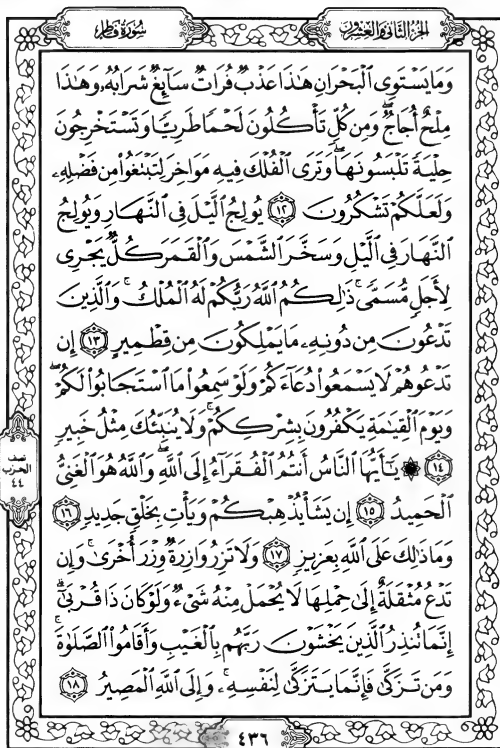 الجزء الثاني والعشرون
سورة فاطر
وَمَا يَسْتَوِي الْبَحْرَانِ هَٰذَا عَذْبٌ فُرَاتٌ سَائِغٌ شَرَابُهُ وَهَٰذَا
مِلْحٌ أُجَاجٌ ۖ وَمِن كُلٍّ تَأْكُلُونَ لَحْمًا طَرِيًّا وَتَسْتَخْرِجُونَ
حِلْيَةً تَلْبَسُونَهَا ۖ وَتَرَى الْفُلْكَ فِيهِ مَوَاخِرَ لِتَبْتَغُوا مِن فَضْلِهِ
وَلَعَلَّكُمْ تَشْكُرُونَ ١٢ يُولِجُ اللَّيْلَ فِي النَّهَارِ وَيُولِجُ
النَّهَارَ فِي اللَّيْلِ وَسَخَّرَ الشَّمْسَ وَالْقَمَرَ كُلٌّ يَجْرِي
لِأَجَلٍ مُّسَمًّى ۚ ذَٰلِكُمُ اللَّهُ رَبُّكُمْ لَهُ الْمُلْكُ ۚ وَالَّذِينَ
تَدْعُونَ مِن دُونِهِ مَا يَمْلِكُونَ مِن قِطْمِيرٍ ١٣ إِن
تَدْعُوهُمْ لَا يَسْمَعُوا دُعَاءَكُمْ وَلَوْ سَمِعُوا مَا اسْتَجَابُوا لَكُمْ ۖ
وَيَوْمَ الْقِيَامَةِ يَكْفُرُونَ بِشِرْكِكُمْ ۚ وَلَا يُنَبِّئُكَ مِثْلُ خَبِيرٍ
١٤ ۞ يَا أَيُّهَا النَّاسُ أَنتُمُ الْفُقَرَاءُ إِلَى اللَّهِ ۖ وَاللَّهُ هُوَ الْغَنِيُّ
الْحَمِيدُ ١٥ إِن يَشَأْ يُذْهِبْكُمْ وَيَأْتِ بِخَلْقٍ جَدِيدٍ ١٦
وَمَا ذَٰلِكَ عَلَى اللَّهِ بِعَزِيزٍ ١٧ وَلَا تَزِرُ وَازِرَةٌ وِزْرَ أُخْرَىٰ ۚ وَإِن
تَدْعُ مُثْقَلَةٌ إِلَىٰ حِمْلِهَا لَا يُحْمَلْ مِنْهُ شَيْءٌ وَلَوْ كَانَ ذَا قُرْبَىٰ ۗ
إِنَّمَا تُنذِرُ الَّذِينَ يَخْشَوْنَ رَبَّهُم بِالْغَيْبِ وَأَقَامُوا الصَّلَاةَ ۚ
وَمَن تَزَكَّىٰ فَإِنَّمَا يَتَزَكَّىٰ لِنَفْسِهِ ۚ وَإِلَى اللَّهِ الْمَصِيرُ ١٨
نصف
الحزب
٤٤
٤٣٦